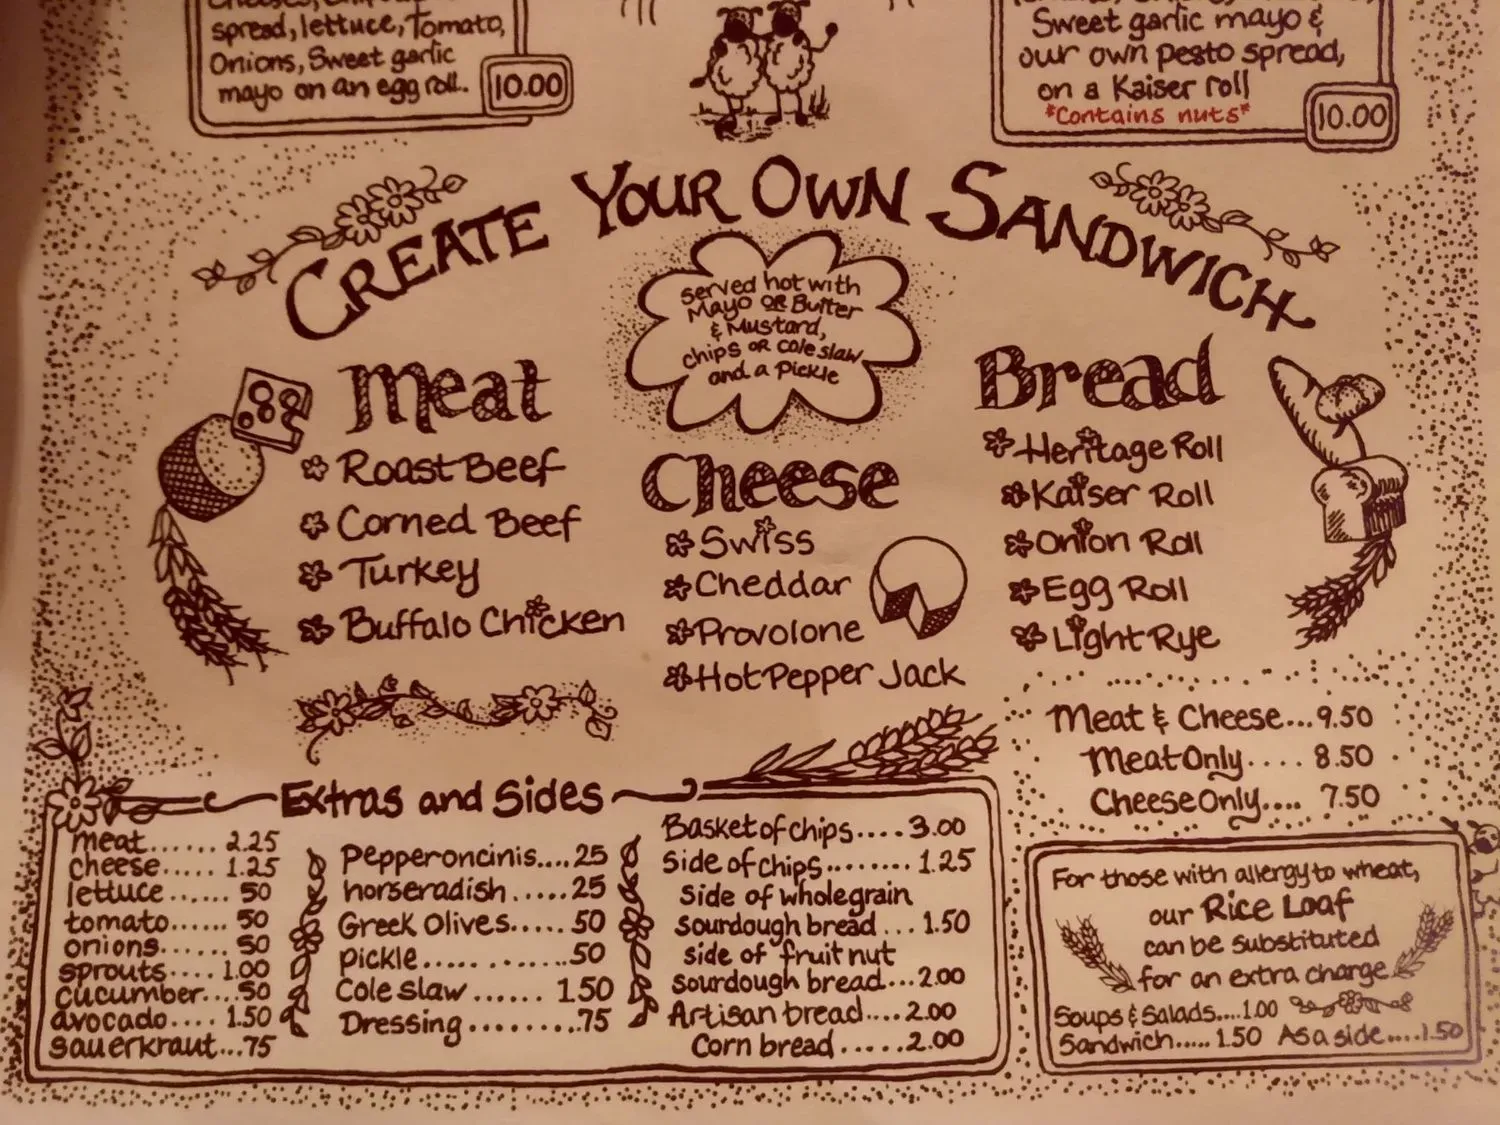 spread, lettuce, Tomato,
Onions, Sweet garlic
mayo on an egg roll.
10.00
Sweet garlic mayo &
our own pesto spread,
on a Kaiser roll
*Contains nuts*
10.00
CREATE YOUR OWN SANDWICH
served hot with
Mayo OR Butter
& Mustard,
chips OR cole slaw
and a pickle
Meat
Roast Beef
Corned Beef
Turkey
Buffalo Chicken
Cheese
Swiss
Cheddar
Provolone
Hot Pepper Jack
Bread
Heritage Roll
Kaiser Roll
Onion Roll
Egg Roll
Light Rye
Meat & Cheese...9.50
Meat Only....8.50
Cheese Only.... 7.50
Extras and Sides
meat...... 2.25
cheese..... 1.25
lettuce...... 50
tomato...... 50
onions...... 50
sprouts.... 1.00
cucumber....50
avocado.... 1.50
sauerkraut...75
Pepperoncinis....25
horseradish.....25
Greek Olives..... 50
pickle............50
Cole slaw...... 1.50
Dressing.........75
Basket of chips....3.00
Side of chips........1.25
Side of wholegrain
sourdough bread...1.50
side of fruit nut
sourdough bread...2.00
Artisan bread....2.00
Corn bread.....2.00
For those with allergy to wheat,
our Rice Loaf
can be substituted
for an extra charge
Soups & Salads....1.00
Sandwich..... 1.50 As a side....1.50